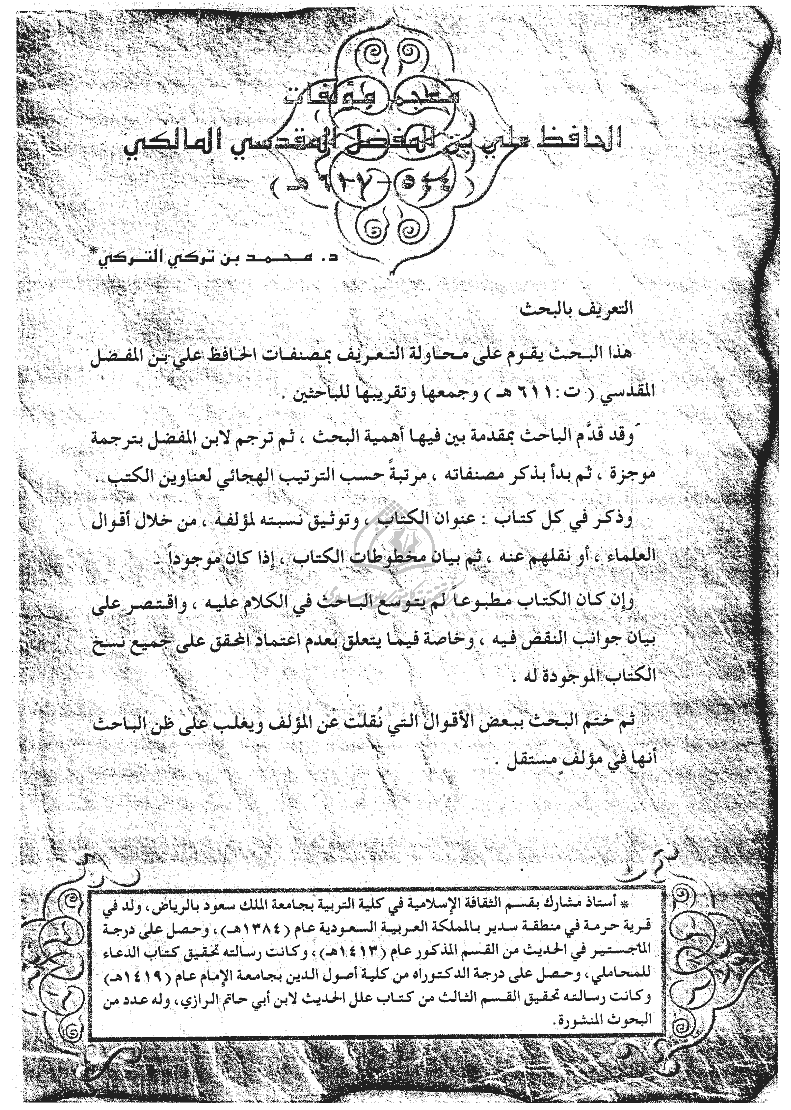 معجم مؤلفات
الحافظ علي بن المفضل المقدسي المالكي
د. محمد بن تركي التركي*
التعريف بالبحث
هذا البحث يقوم على محاولة التعريف بمصنفات الحافظ علي بن المفضل
المقدسي ( ت : ٦١١ هـ ) وجمعها وتقريبها للباحثين .
وقد قدَّم الباحث بمقدمة بين فيها أهمية البحث ، ثم ترجم لابن المفضل بترجمة
موجزة ، ثم بدأ بذكر مصنفاته ، مرتبةً حسب الترتيب الهجائي لعناوين الكتب..
وذكر في كل كتاب : عنوان الكتاب ، وتوثيق نسبته لمؤلفه ، من خلال أقوال
العلماء ، أو نقلهم عنه ، ثم بيان مخطوطات الكتاب ، إذا كان موجوداً .
وإن كان الكتاب مطبوعا لم يتوسع الباحث في الكلام عليه ، واقتصر على
بيان جوانب النقص فيه ، وخاصة فيما يتعلق بعدم اعتماد المحقق على جميع نسخ
الكتاب الموجودة له .
ثم ختم البحث ببعض الأقوال التي نُقلت عن المؤلف ويغلب على ظن الباحث
أنها في مؤلفٍ مستقل .
* أستاذ مشارك بقسم الثقافة الإسلامية في كلية التربية بجامعة الملك سعود بالرياض، ولد في
قرية حرمة في منطقة سدير بالمملكة العربية السعودية عام (١٣٨٤هـ)، وحصل على درجة
الماجستير في الحديث من القسم المذكور عام (١٤١٣هـ)، وكانت رسالته تحقيق كتاب الدعاء
للمحاملي، وحصل على درجة الدكتوراه من كلية أصول الدين بجامعة الإمام عام (١٤١٩هـ)
وكانت رسالته تحقيق القسم الثالث من كتاب علل الحديث لابن أبي حاتم الرازي، وله عدد من
البحوث المنشورة.